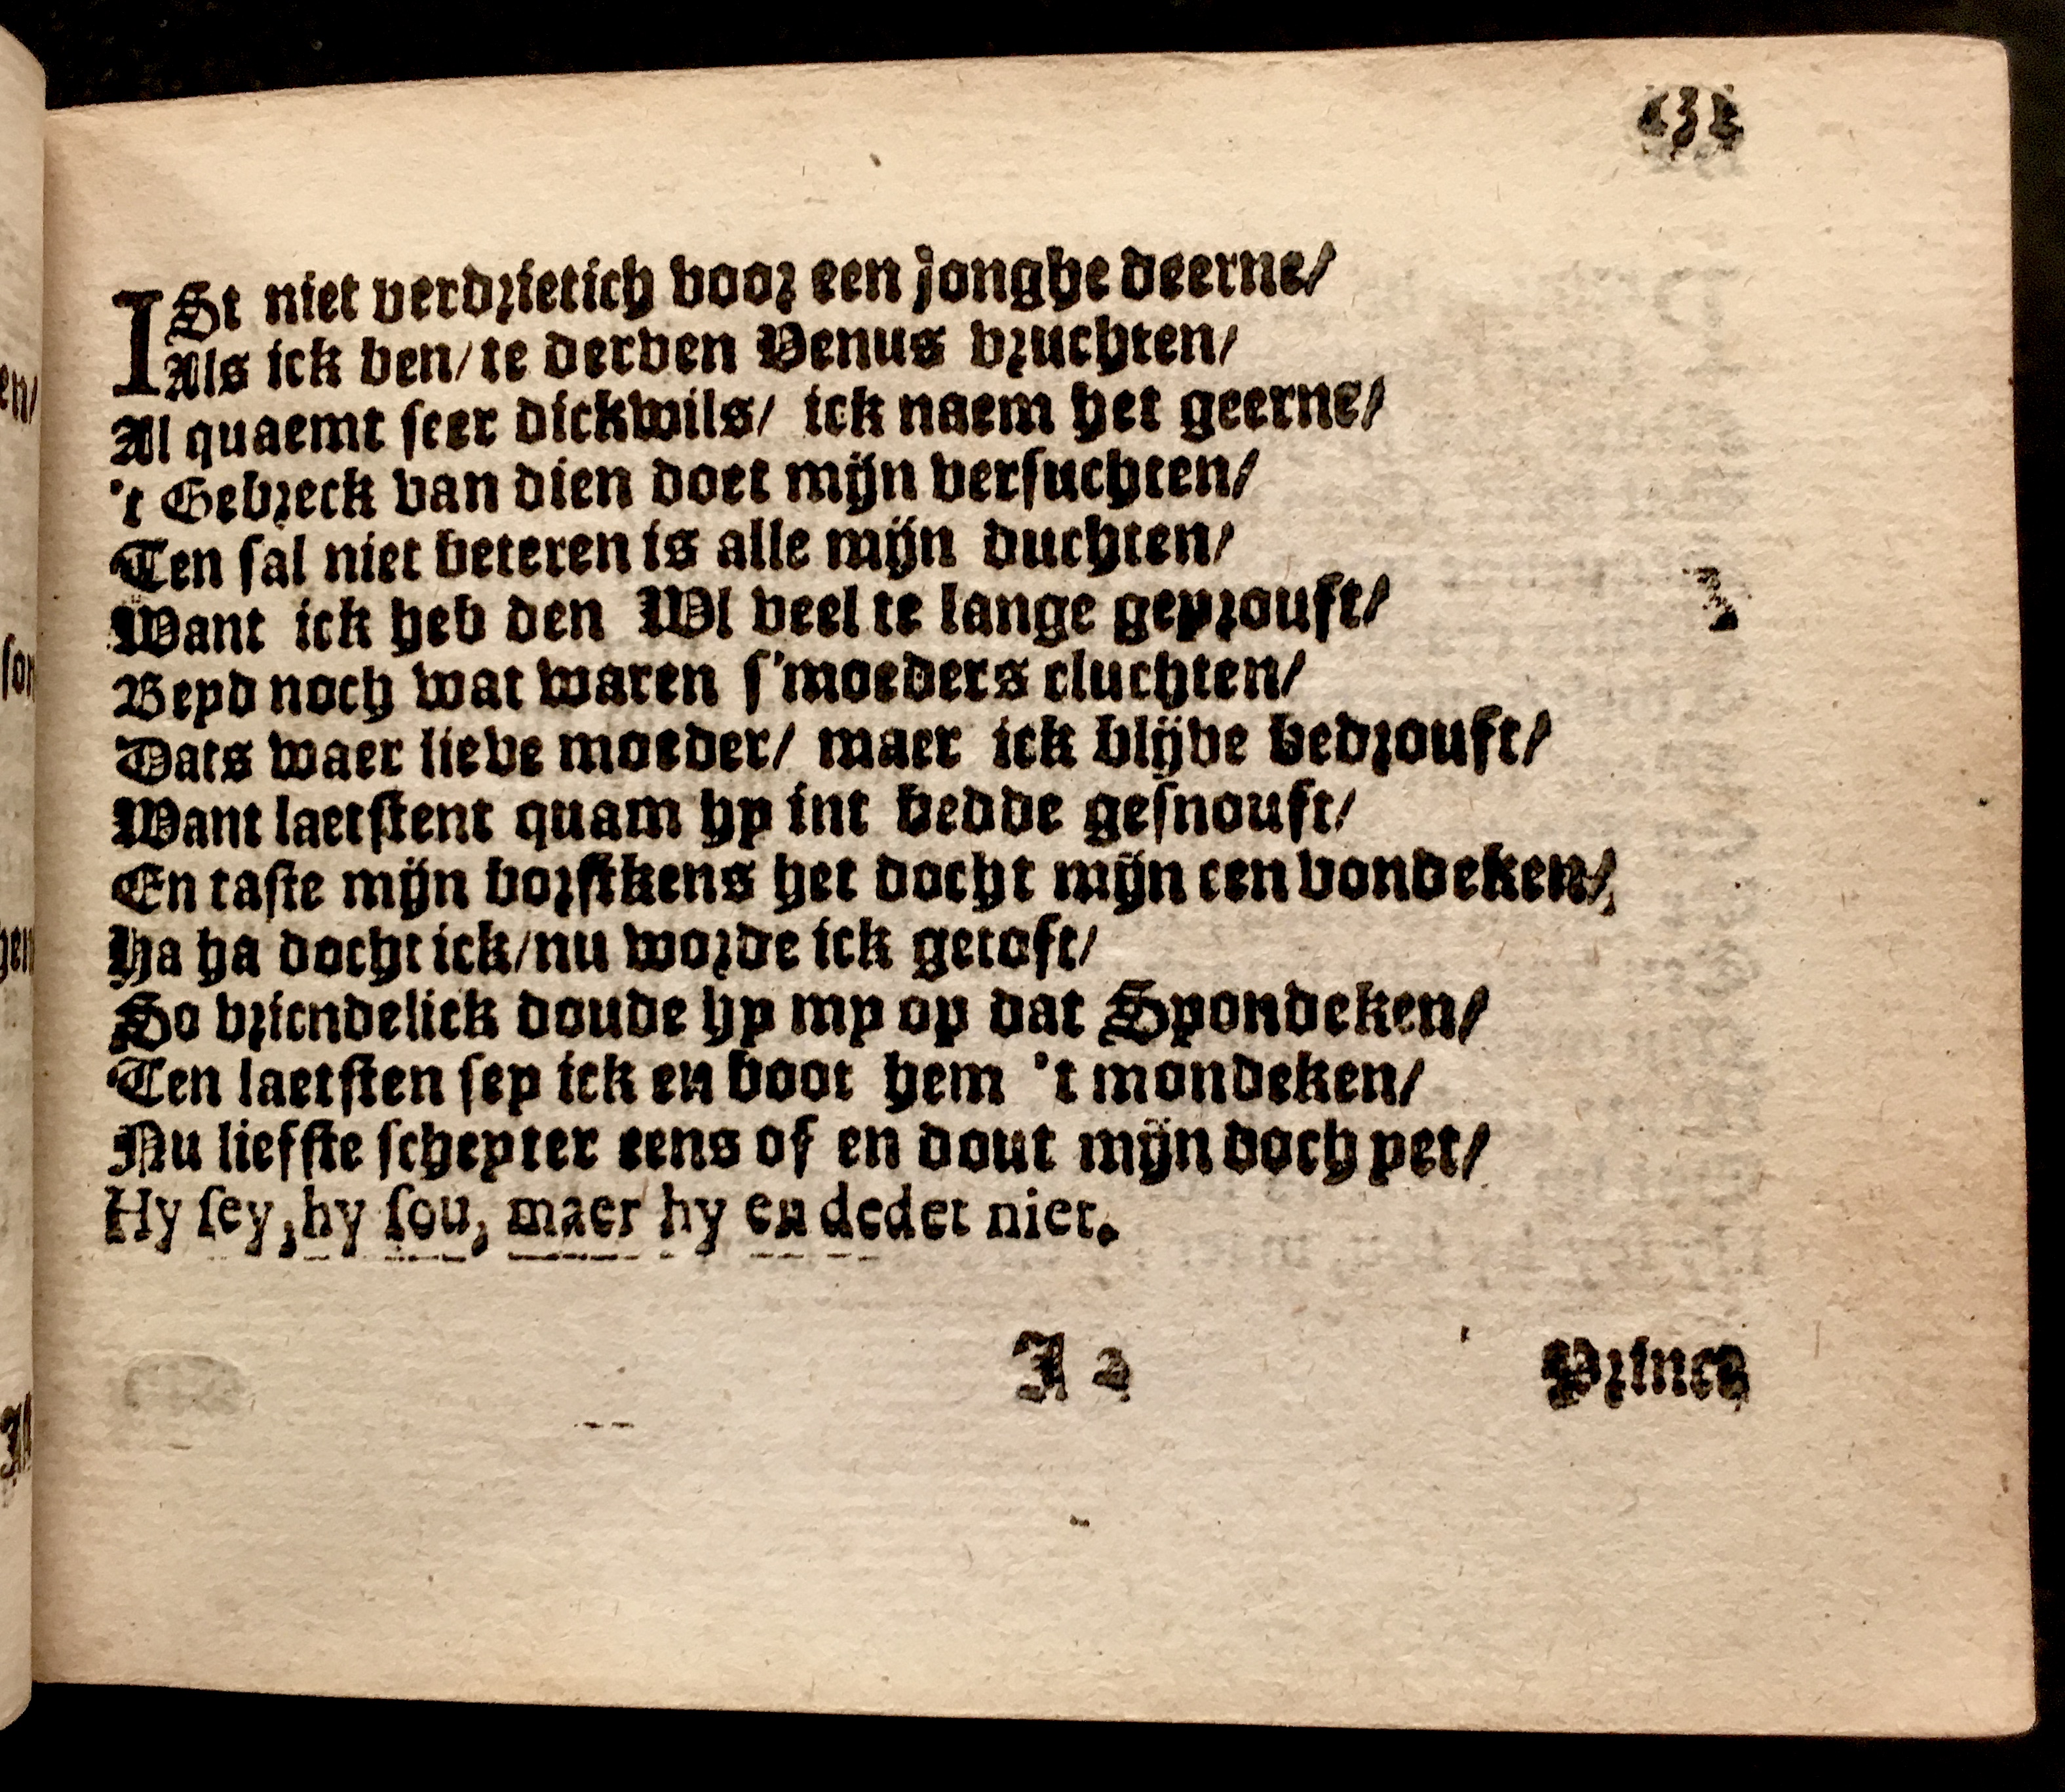 131
ISt niet verdrietich voor een jonghe deerne/
Als ick ben/ te derven Venus vruchten/
Al quaemt seer dickwils/ ick naem het geerne/
't Gebreck van dien doet mijn versuchten/
Ten sal niet beteren is alle mijn duchten/
Want ick heb den Wl veel te lange geprouft/
Beyd noch wat waren s'moeders cluchten/
Dats waer lieve moeder/ maer ick blijve bedrouft/
Want laetstent quam hy int bedde gesnouft/
En taste mijn borstkens het docht mijn een vondeken/
Ha ha docht ick/nu worde ick getoft/
So vriendelick doude hy my op dat Spondeken/
Ten laetsten sey ick en boot hem 't mondeken/
Nu liefste scheyter eens of en dout mijn doch yet/
Hy sey, hy sou, maer hy en dedet niet.
I 2 Prince